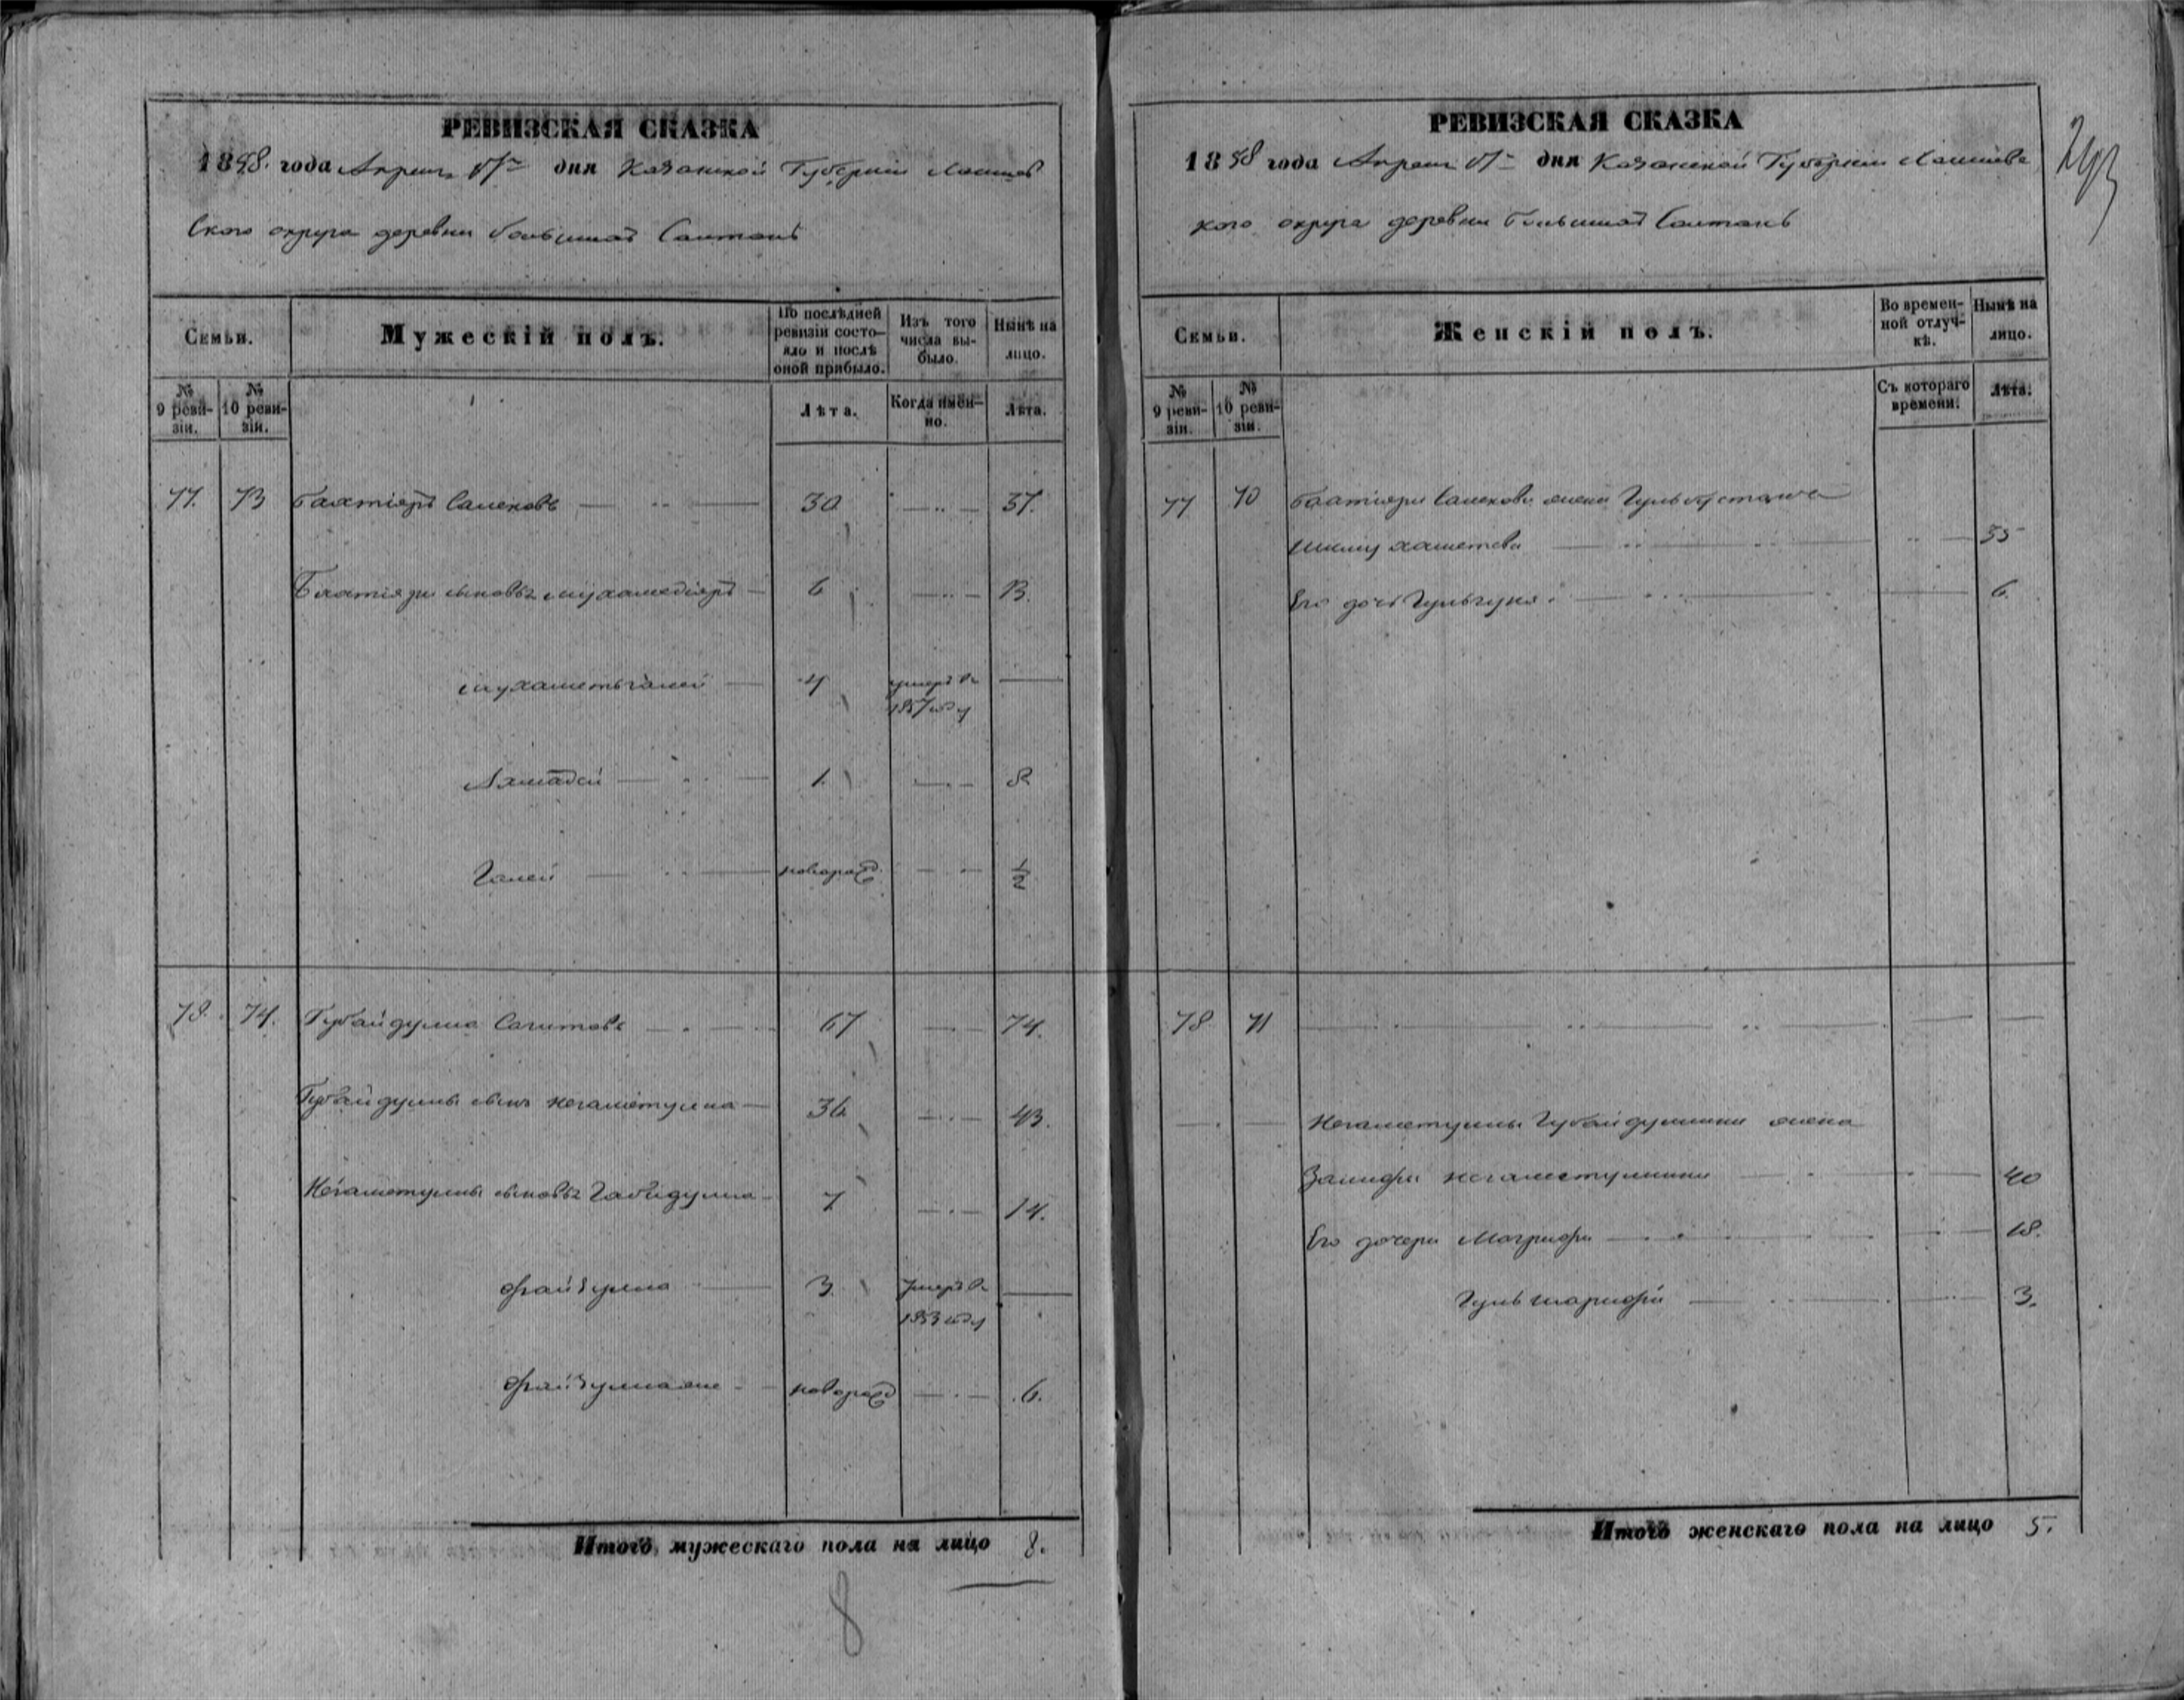 РЕВИЗСКАЯ СКАЗКА
1858. года Апреля дня Казанской Губернии Лаишев
ского округа деревни большихъ
Семьи. Мужескій полъ. По послѣдней ревизіи состояло и послѣ оной прибыло. Изъ того числа выбыло. Нынѣ на лицо.
№ 9 ревизіи. № 10 ревизіи. Лѣта. Когда имен-но. Лѣта.
77. 73 Бахтіяръ 30 37.
Бахтіяри сыновья мухамедіяръ 6 13.
мухаметьгалей 4 умеръ в
1857 году
Ахмадей 1. 8
Галей новорожд. ½
78. 74. Губайдулла Сагитовъ 67 74.
Губайдуллы сынъ Негаметулла 36 43.
Негаметуллы сыновья Габидулла 7 14.
Файзулла 3 Умеръ в
1853 году
новорожд 6.
Итого мужескаго пола на лицо 8.
8
РЕВИЗСКАЯ СКАЗКА
1858 года Апреля дня Казанской Губернии Лаишевс
кого округа деревни большихъ
293
Семьи. Женскій полъ. Во времен-ной отлуч-кѣ. Нынѣ на лицо.
№ 9 ревизіи. № 10 ревизіи. Съ котораго времени. Лѣта.
77 70 Бахтіяри жена
35
Его дочь 6.
78 71
Негаметуллы Губайдуллина жена
Негаметуллина 40
Его дочери Магруфи 18.
Гульшарифи 3.
Итого женскаго пола на лицо 5.